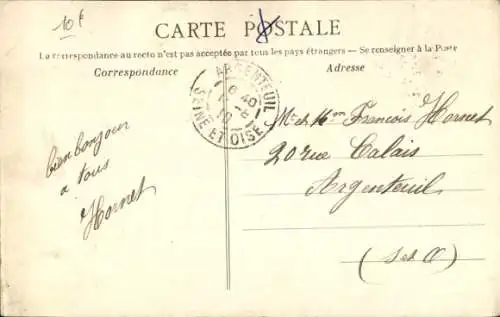 10 f
CARTE POSTALE
La correspondance au recto n'est pas acceptée par tous les pays étrangers — Se renseigner à la Poste
Correspondance
Adresse
ARGENTEUIL
6 40
SEINE ET OISE
bien bonjour
à tous
Hornet
Mr et Mme Francois Hornet
20 rue Calais
Argenteuil
(S et O)